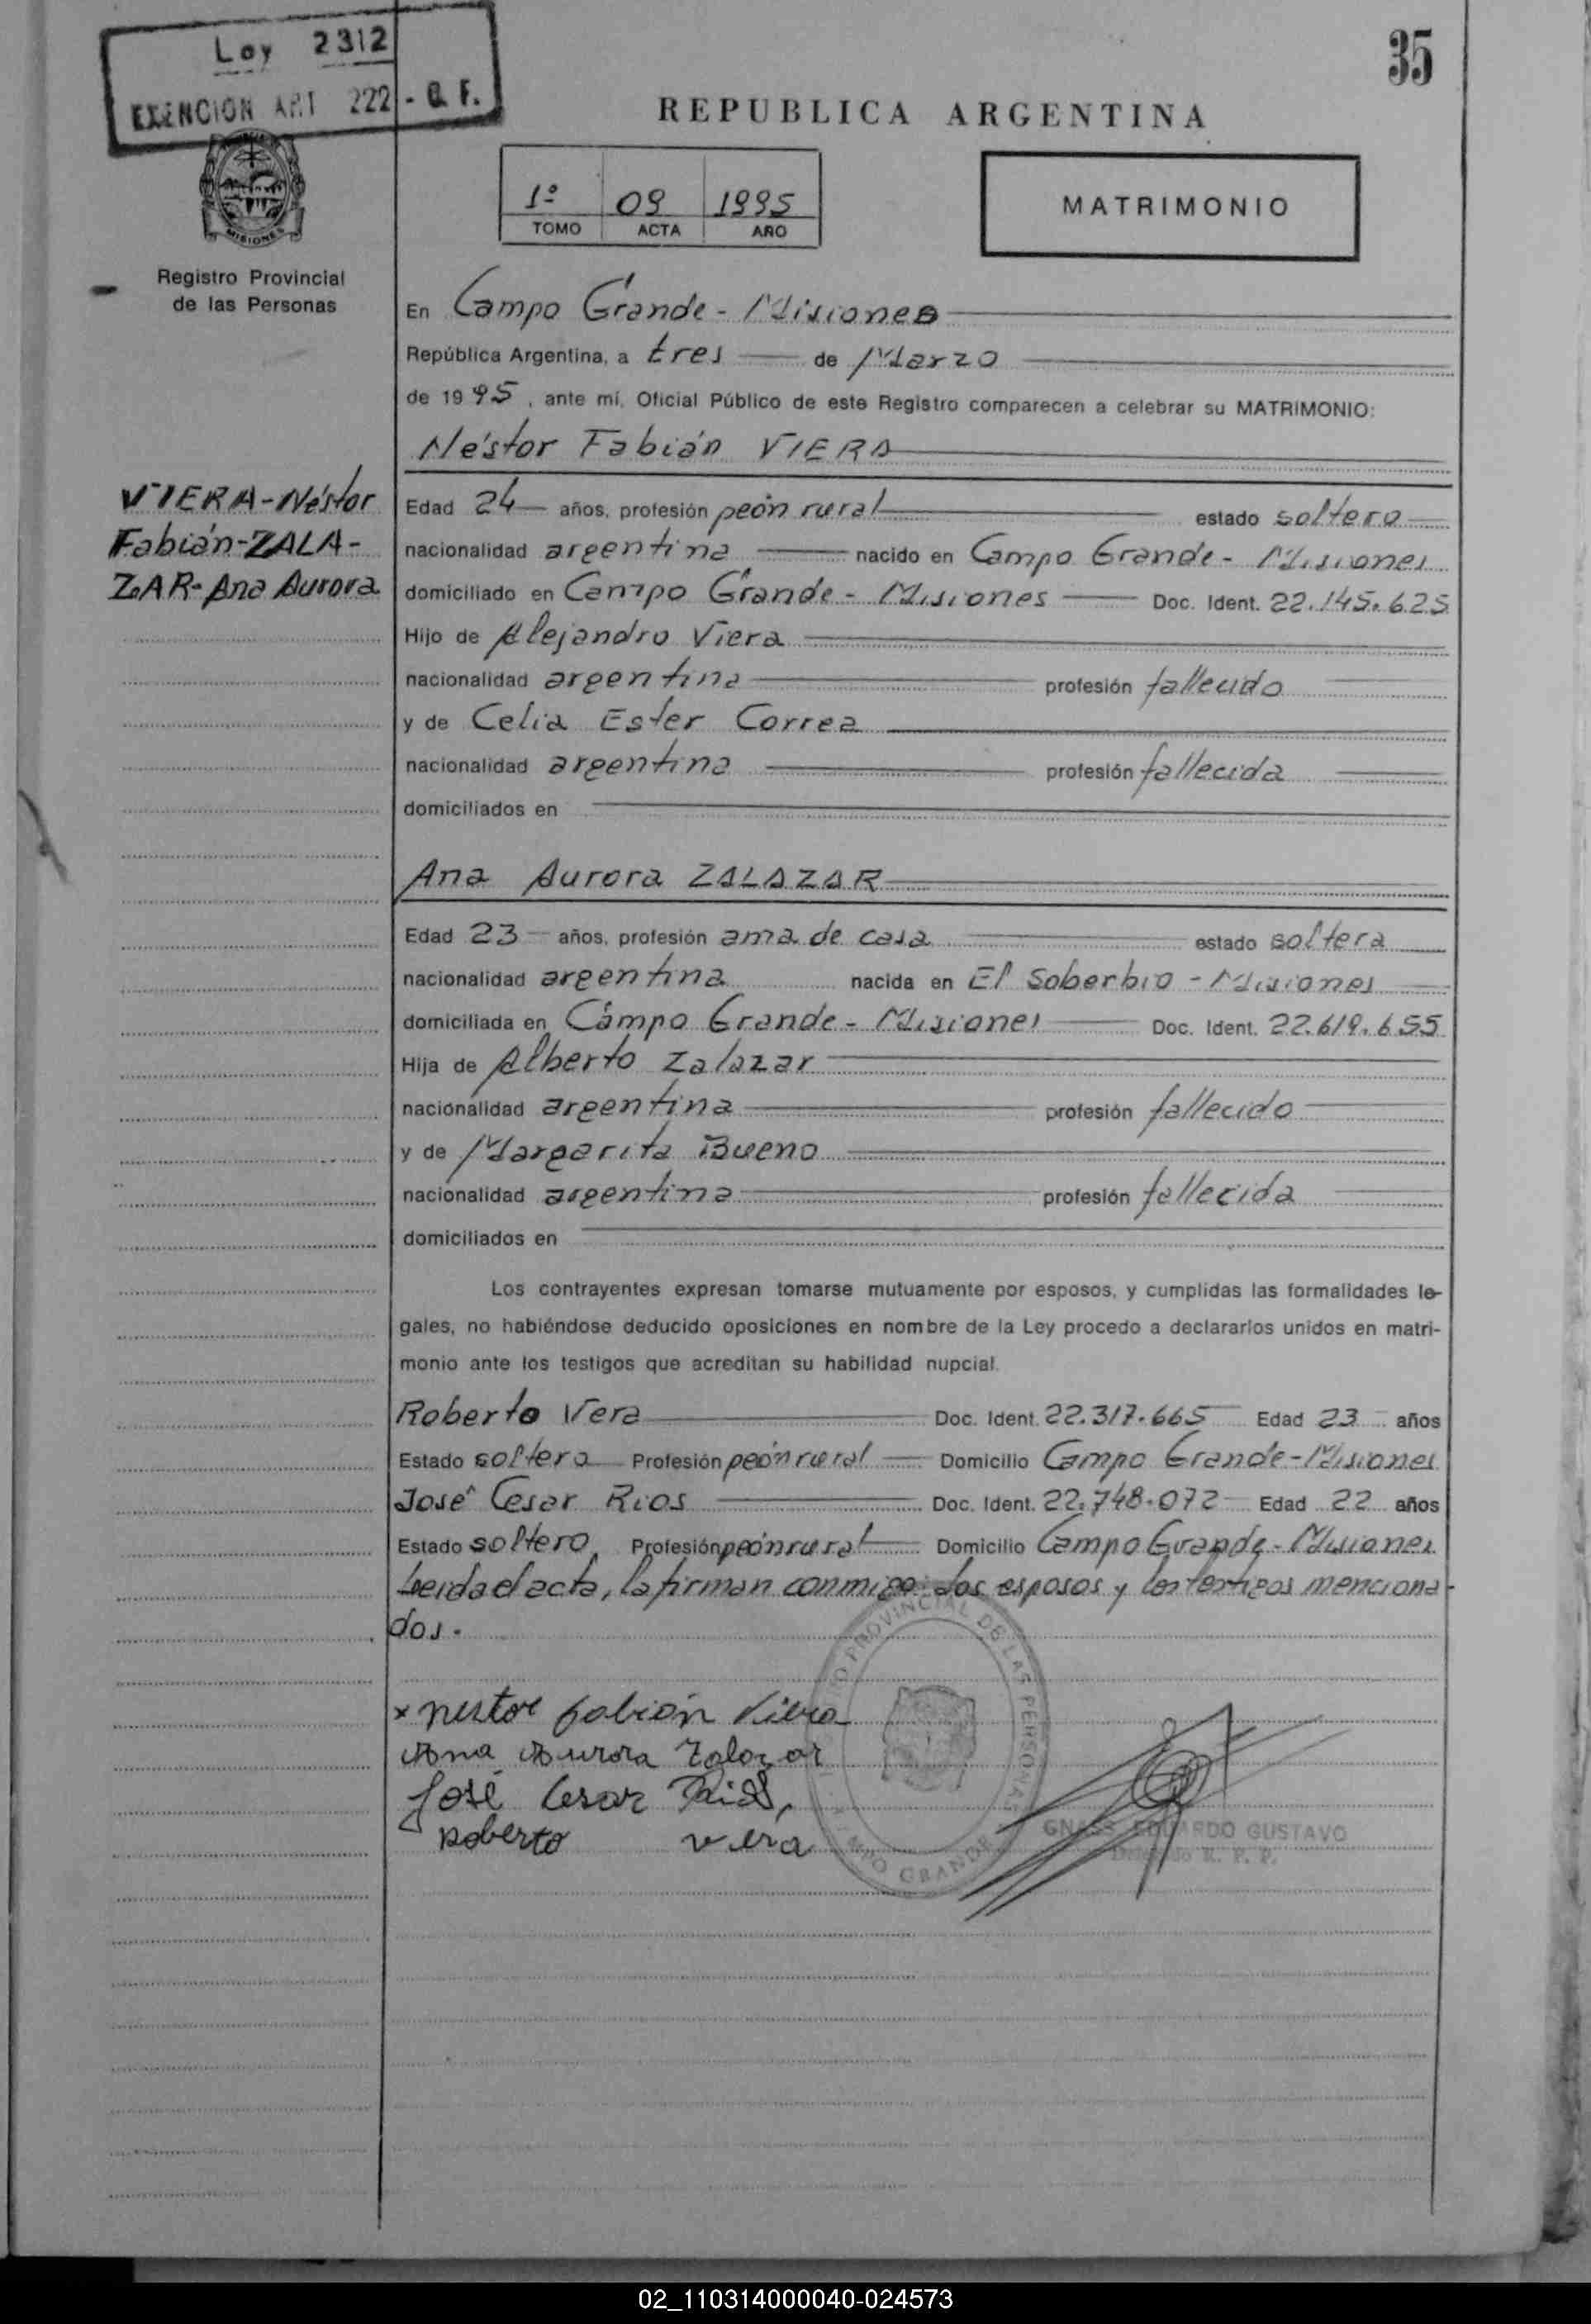 Ley 2312
EXENCION ART 222 - C. F.
35
REPUBLICA ARGENTINA
1º 09 1995
TOMO ACTA AÑO
MATRIMONIO
MISIONES
Registro Provincial
de las Personas
En Campo Grande - Misiones
República Argentina, a tres de Marzo
de 1995, ante mí, Oficial Público de este Registro comparecen a celebrar su MATRIMONIO:
Néstor Fabián VIERA
VIERA-Néstor
Fabián-ZALA-
ZAR-Ana Aurora
Edad 24 años, profesión peón rural estado soltero
nacionalidad argentina nacido en Campo Grande - Misiones
domiciliado en Campo Grande - Misiones Doc. Ident. 22.145.625
Hijo de Alejandro Viera
nacionalidad argentina profesión fallecido
y de Celia Ester Correa
nacionalidad argentina profesión fallecida
domiciliados en
Ana Aurora ZALAZAR
Edad 23 años, profesión ama de casa estado soltera
nacionalidad argentina nacida en El Soberbio - Misiones
domiciliada en Campo Grande - Misiones Doc. Ident. 22.619.655
Hija de Alberto Zalazar
nacionalidad argentina profesión fallecido
y de Margarita Bueno
nacionalidad argentina profesión fallecida
domiciliados en
Los contrayentes expresan tomarse mutuamente por esposos, y cumplidas las formalidades le-
gales, no habiéndose deducido oposiciones en nombre de la Ley procedo a declararlos unidos en matri-
monio ante los testigos que acreditan su habilidad nupcial.
Roberto Vera Doc. Ident. 22.317.665 Edad 23 años
Estado soltero Profesión peón rural Domicilio Campo Grande - Misiones
José Cesar Rios Doc. Ident. 22.748.072 Edad 22 años
Estado soltero Profesión peón rural Domicilio Campo Grande - Misiones
Leída el acta, la firman conmigo: los esposos y los testigos menciona-
dos.
PROVINCIAL DE LAS PERSONAS
CAMPO GRANDE
x nestor fabión Viera
Ana Aurora Zalazar
José Cesar Rios,
Roberto vera
GNASS EDUARDO GUSTAVO
Delegado R. P. P.
02_110314000040-024573